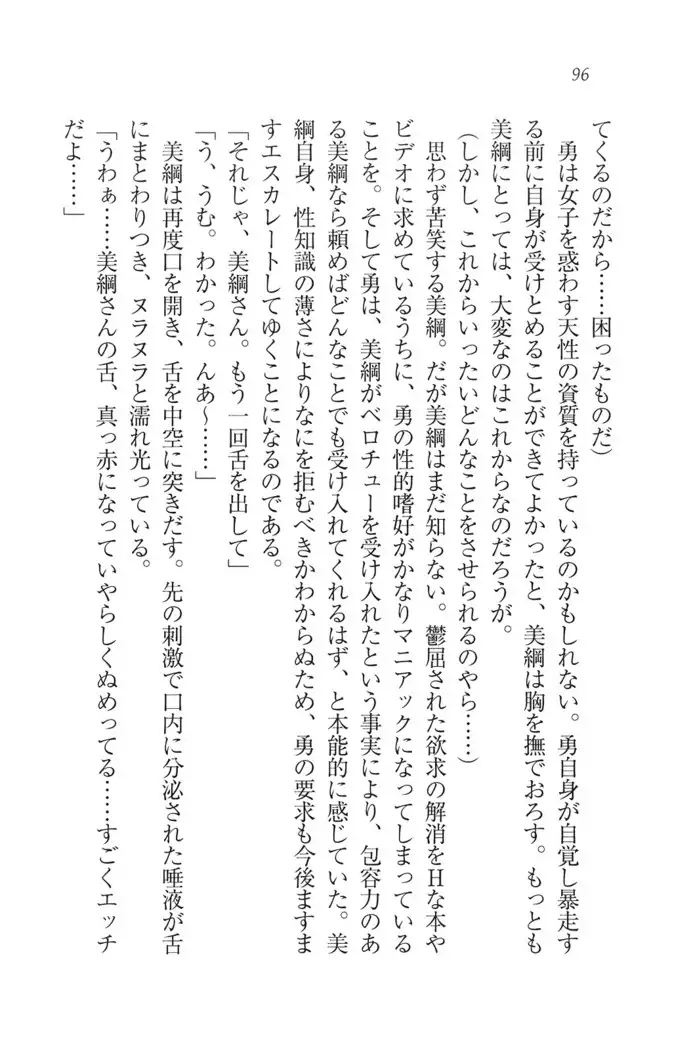 96
てくるのだから……困ったものだ）
　勇は女子を惑わす天性の資質を持っているのかもしれない。勇自身が自覚し暴走す
る前に自身が受けとめることができてよかったと、美綱は胸を撫でおろす。もっとも
美綱にとっては、大変なのはこれからなのだろうが。
（しかし、これからいったいどんなことをさせられるのやら……）
　思わず苦笑する美綱。だが美綱はまだ知らない。鬱屈された欲求の解消をＨな本や
ビデオに求めているうちに、勇の性的嗜好がかなりマニアックになってしまっている
ことを。そして勇は、美綱がベロチューを受け入れたという事実により、包容力のあ
る美綱なら頼めばどんなことでも受け入れてくれるはず、と本能的に感じていた。美
綱自身、性知識の薄さによりなにを拒むべきかわからぬため、勇の要求も今後ますま
すエスカレートしてゆくことになるのである。
「それじゃ、美綱さん。もう一回舌を出して」
「う、うむ。わかった。んあ～……」
　美綱は再度口を開き、舌を中空に突きだす。先の刺激で口内に分泌された唾液が舌
にまとわりつき、ヌラヌラと濡れ光っている。
「うわぁ……美綱さんの舌、真っ赤になっていやらしくぬめってる……すごくエッチ
だよ……」